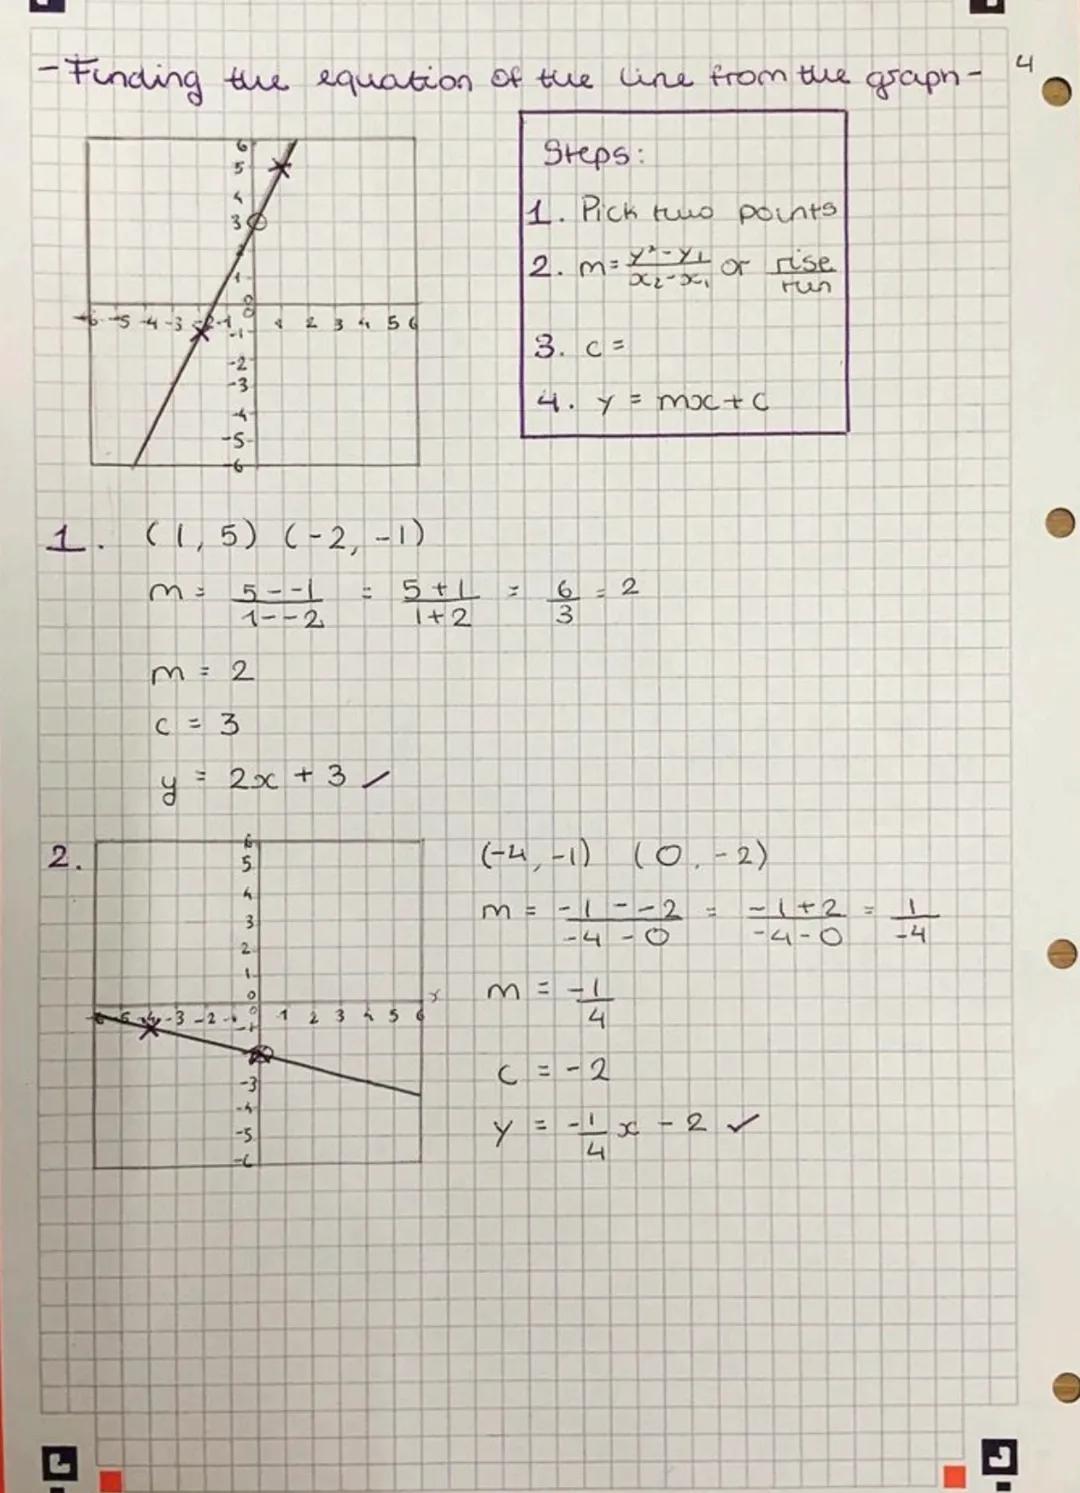 4
-Finding the equation of the line from the graph-
6
5
4
3
2
1
0
-6 -5 -4 -3 -2 -1 1 2 3 4 5 6
-1
-2
-3
-4
-5
-6
Steps:
1. Pick two points
2. m = y²-y₁/x₂-x₁ or rise/run
3. c =
4. y = mx + c
1. (1, 5) (-2, -1)
m = 5--1/1--2 = 5+1/1+2 = 6/3 = 2
m = 2
c = 3
y = 2x + 3 ✓
2.
6
5
4
3
2
1
0
-6 -5 -4 -3 -2 -1 0 1 2 3 4 5 6 x
-1
-3
-4
-5
-6
(-4, -1) (0, -2)
m = -1--2/-4-0 = -1+2/-4-0 = 1/-4
m = -1/4
c = -2
y = -1/4 x - 2 ✓